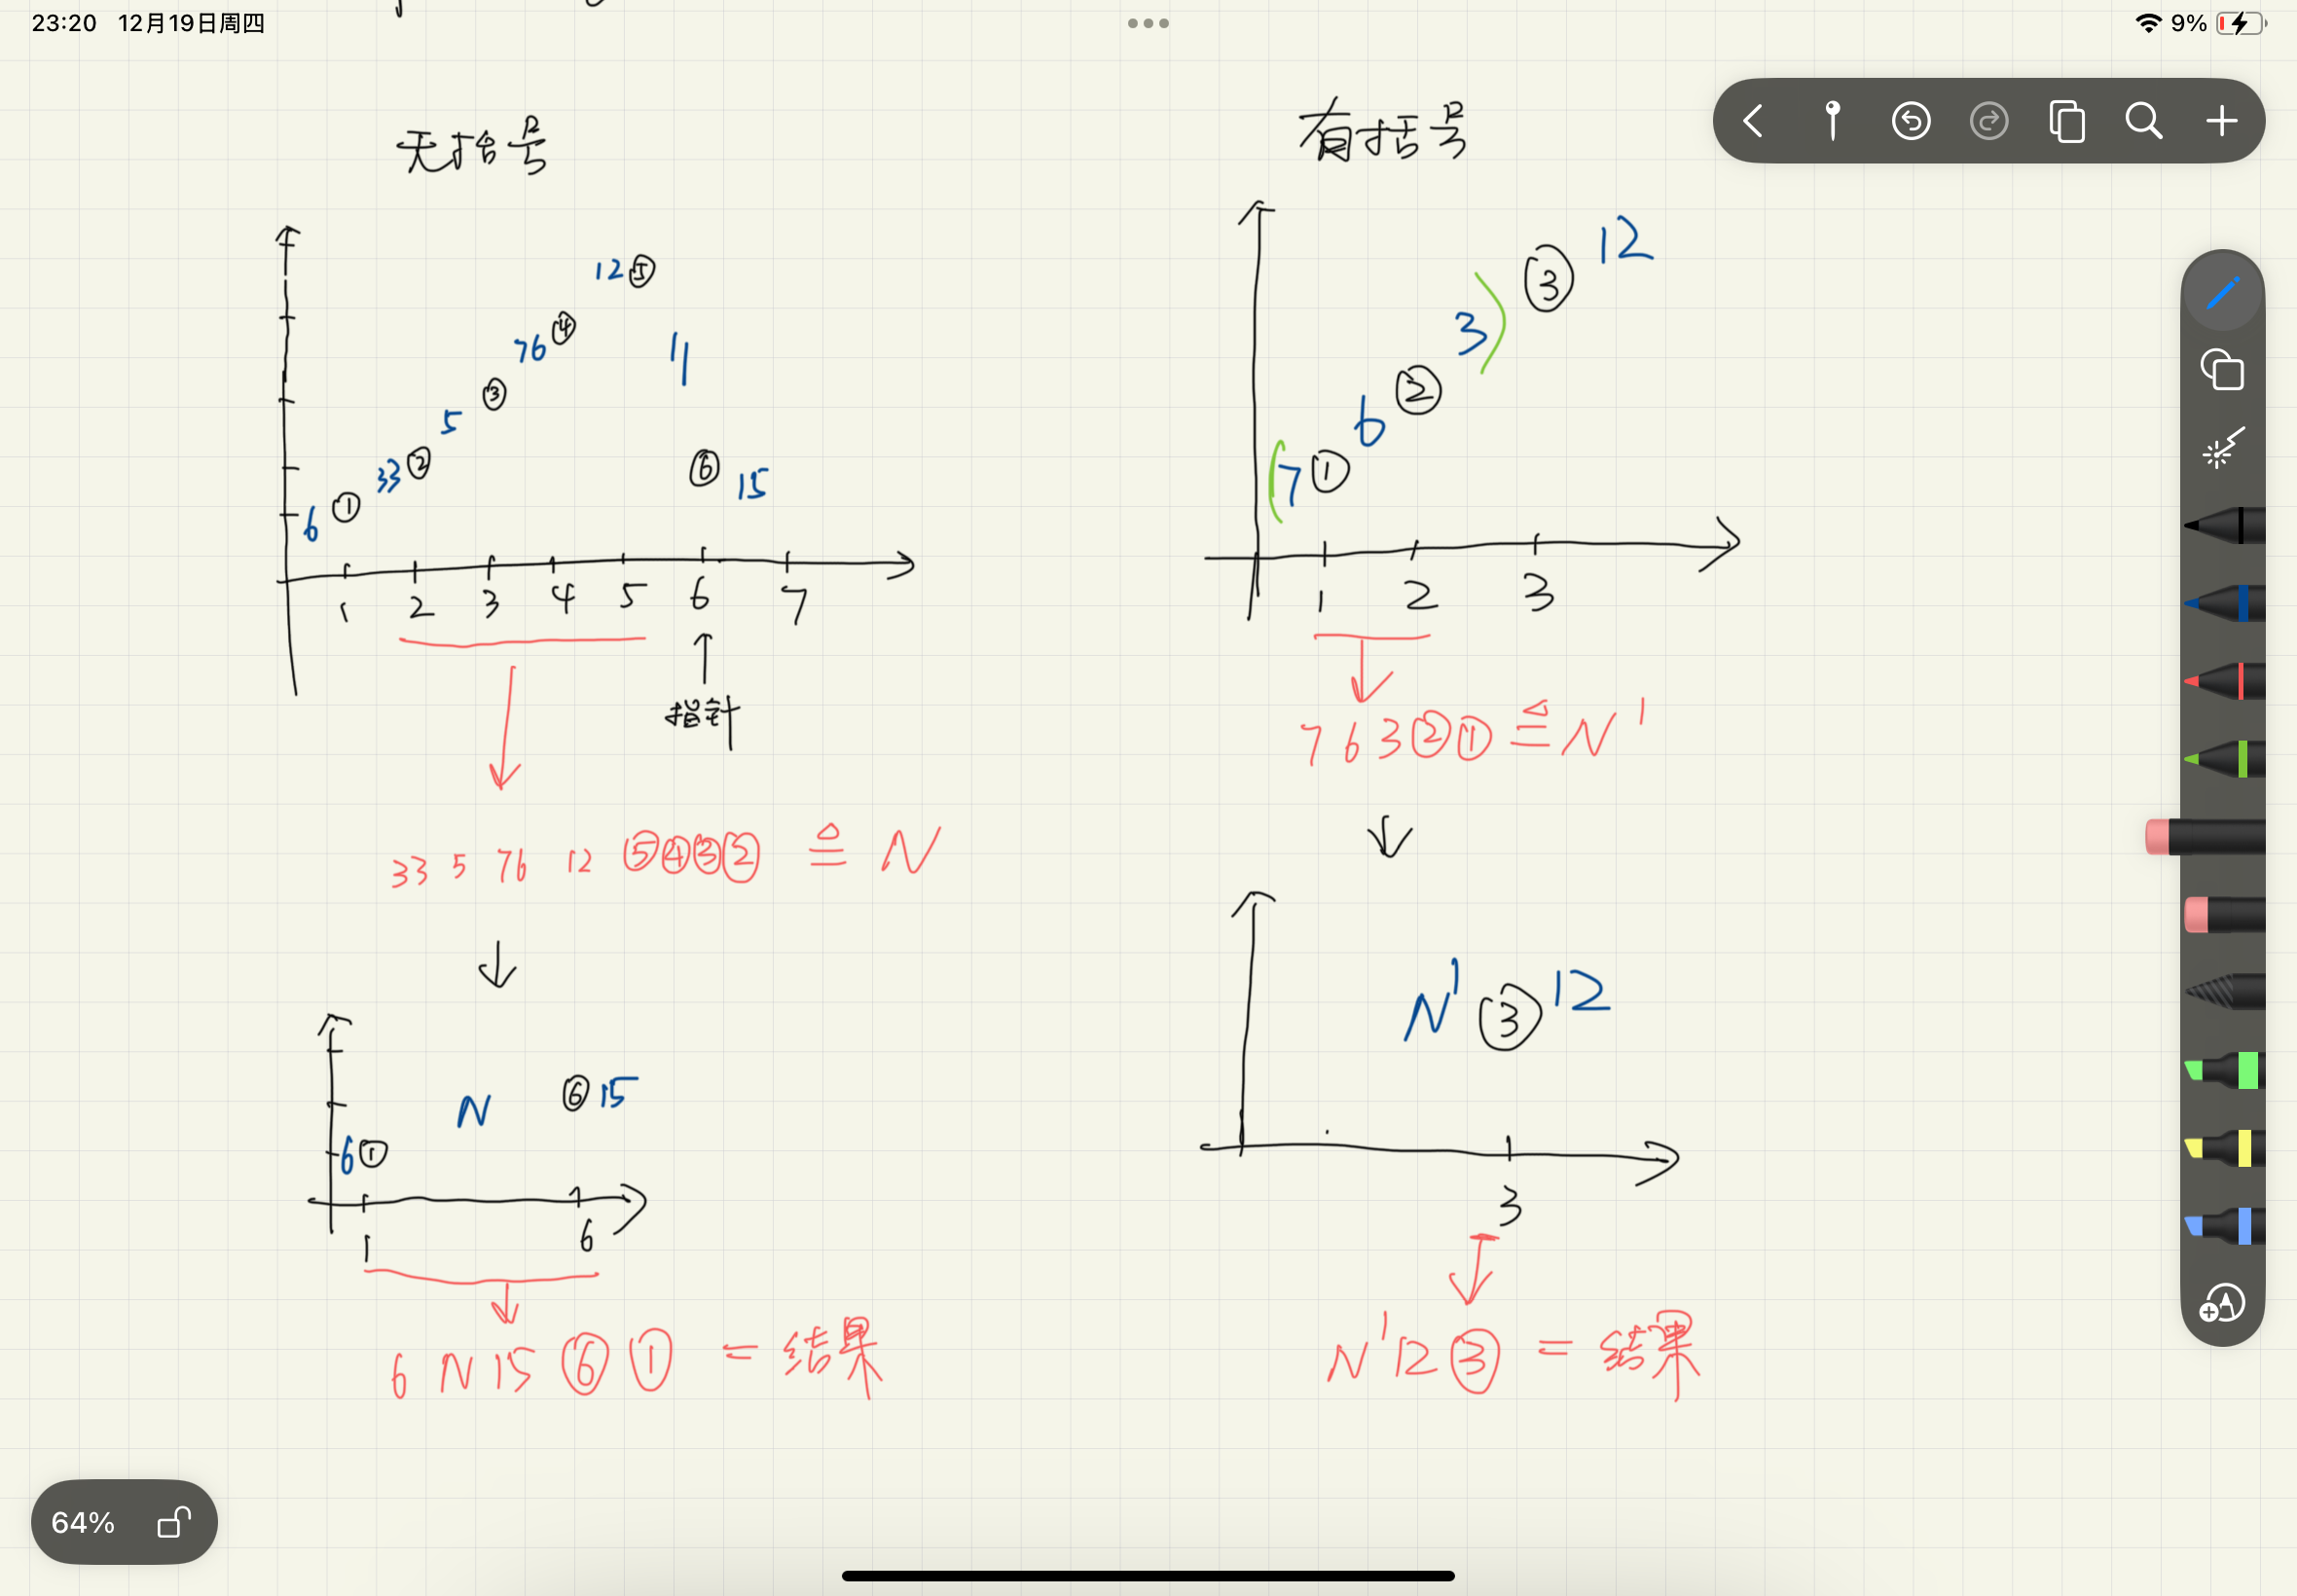 23:20 12月19日周四
9%
无括号
12⑤
76④
11
5 ③
33②
⑥ 15
6 ①
1 2 3 4 5 6 7
指针
33 5 76 12 ⑤④③② ≜ N
N ⑥ 15
6①
1 6
6 N 15 ⑥ ① = 结果
有括号
③ 12
3)
6 ②
(7①
1 2 3
7 6 3 ② ① ≜ N'
N' ③ 12
3
N' 12 ③ = 结果
64%